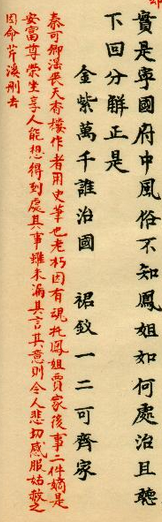 實是寧國府中風俗不知鳳姐如何處治且聽
下回分觧正是
金紫萬千誰治國 裙釵一二可齊家
秦可卿淫喪天香樓作者用史筆也老朽因有魂托鳳姐賈家後事二件嫡是
安富尊榮坐享人能想得到處其事雖未漏其言其意則令人悲切感服姑赦之
因命芹溪刪去